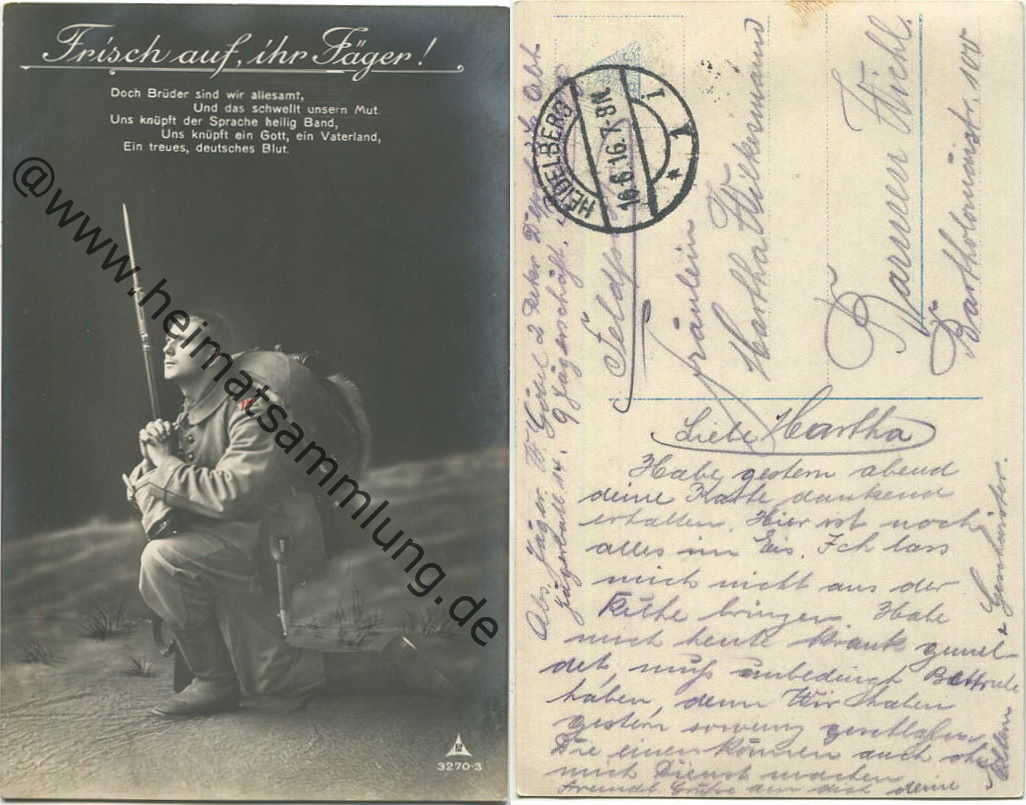 Frisch auf, ihr Jäger!
Doch Brüder sind wir allesamt,
Und das schwellt unsern Mut.
Uns knüpft der Sprache heilig Band,
Uns knüpft ein Gott, ein Vaterland,
Ein treues, deutsches Blut.
@www.heimatsammlung.de
3270-3
HEIDELBERG
16.6.16.7-8N.
Fräulein
Hartha
Barmen Wichl.
Bartholomäusstr. 100
Abs. Jäger
Liebe Hartha
Habe gestern abend
deine Karte dankend
erhalten. Hier ist noch
alles im Eis. Ich lass
mich nicht aus der
Ruhe bringen. Habe
mich heute krank gemel-
det, muß unbedingt Bettruhe
haben, denn Wir haben
gestern sowenig geschlafen
Die einen können auch ohne
mich Dienst machen
deine
Geschwister.